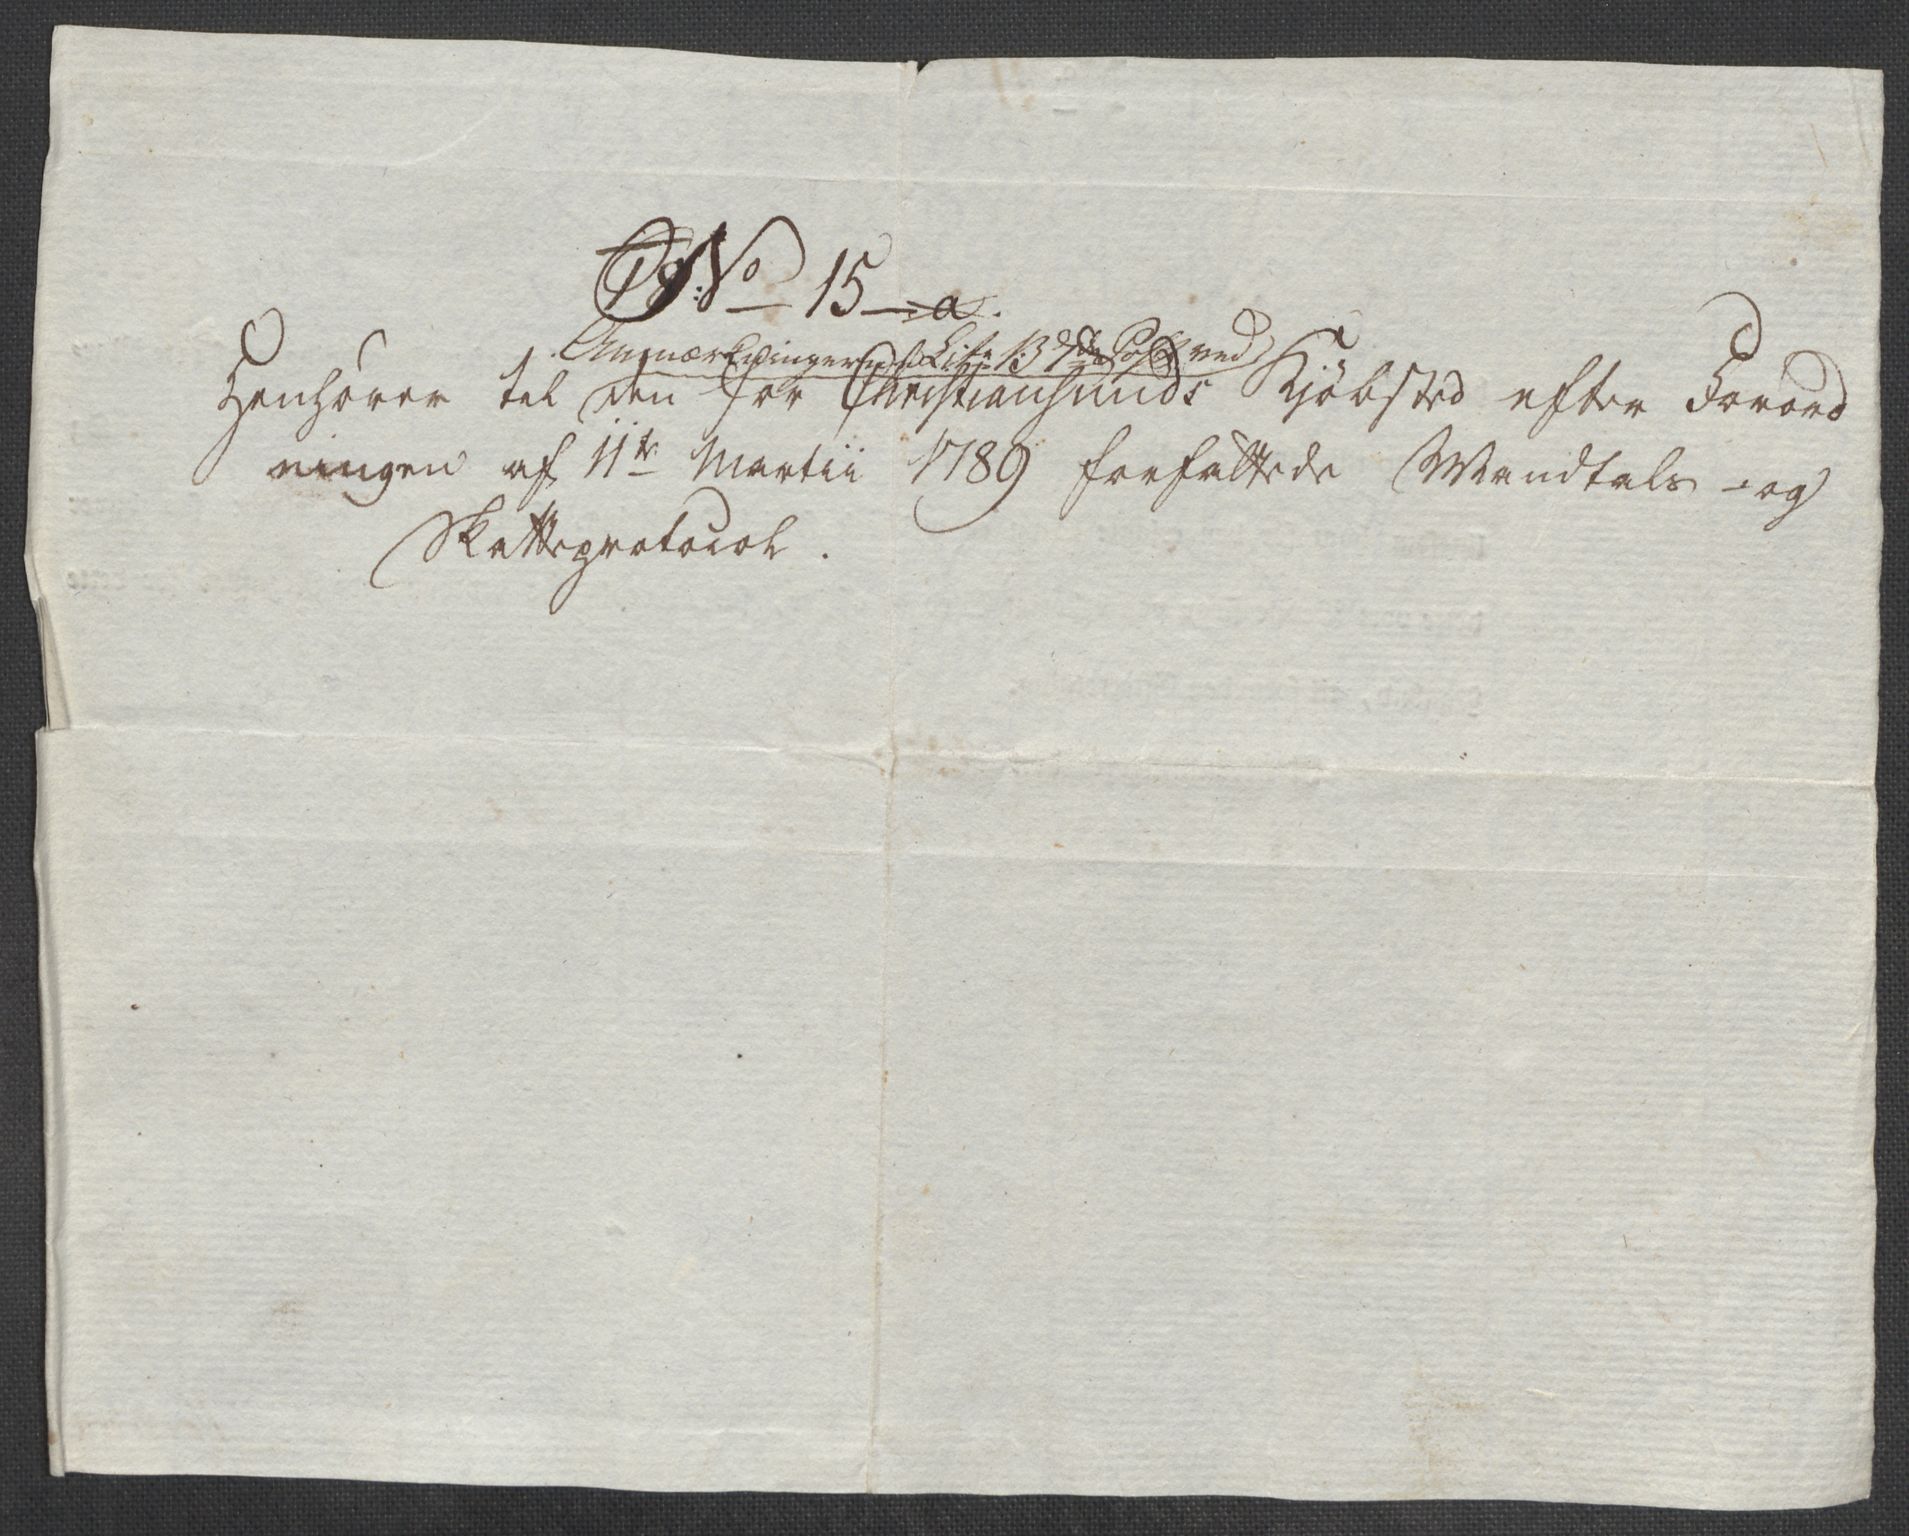 18 No 15 a.
Anmærkninger Litr. B 7de Post ved
Henhörer til den for Christiansunds Kjöbsted efter Forord
ningen af 11te Martii 1789 forfattede Mandtals- og
Skatteprotocol.